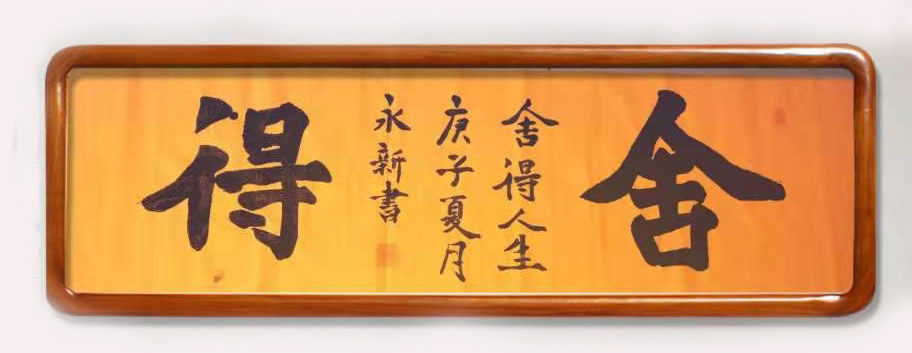 舍
舍得人生
庚子夏月
永新書
得